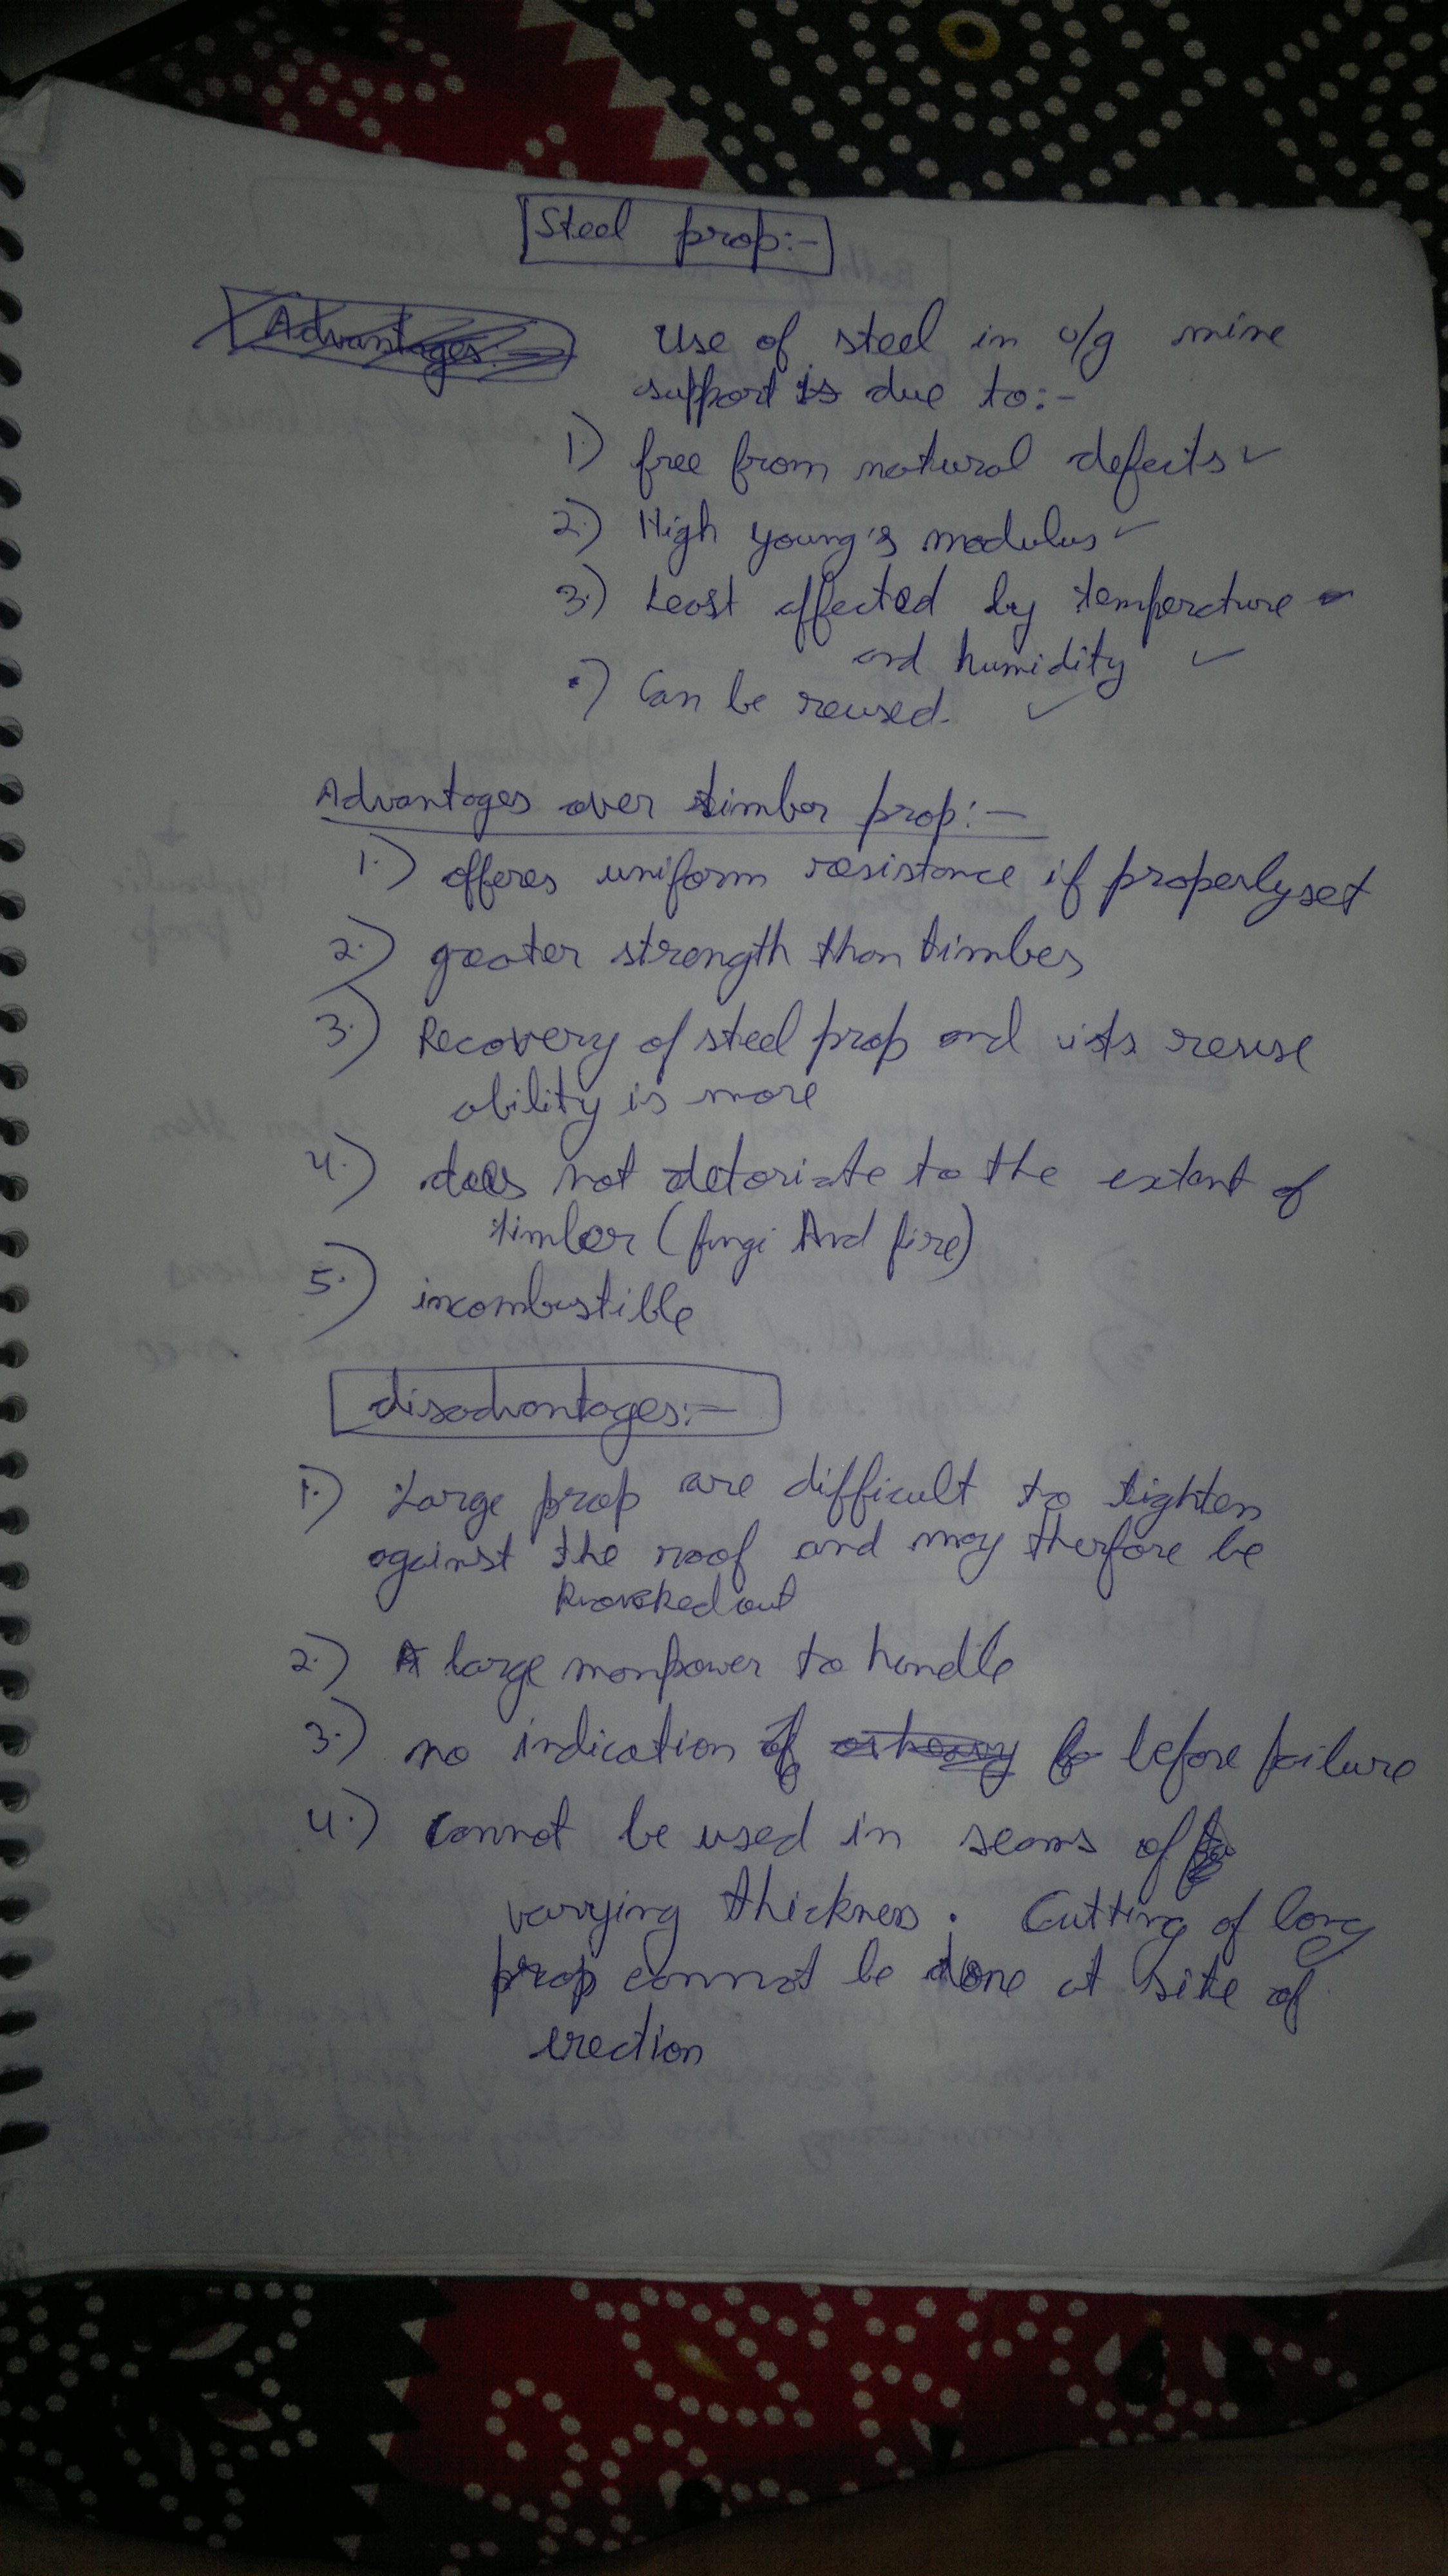 Steel prop:-
Advantages:-
Use of steel in u/g mine
support is due to:-
1) free from natural defects ✓
2.) High young's modulus ✓
3.) Least affected by temperature
and humidity ✓
•) Can be reused. ✓
Advantages over timber prop:-
1.) offeres uniform resistance if properly set
2.) greater strength than timber
3.) Recovery of steel prop and its reuse
ability is more
4.) does not detoriate to the extent of
timber (fungi And fire)
5.) incombustible
disadvantages:-
1.) Large prop are difficult to tighten
against the roof and may therfore be
knocked out
2.) A large manpower to handle
3.) no indication of before failure
4.) cannot be used in seams of
varying thickness. Cutting of long
prop cannot be done at site of
erection